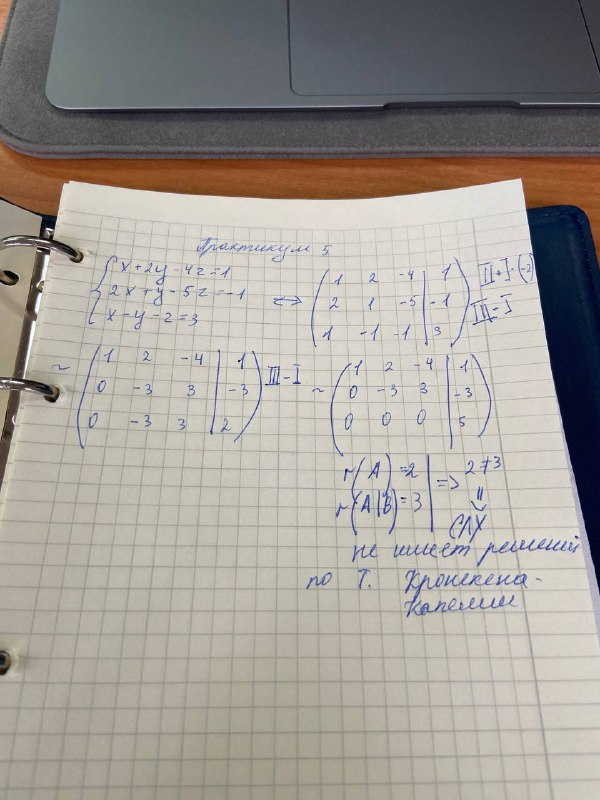 Практикум 5
{ x+2y-4z=1
2x+y-5z=-1
x-y-z=3
<=> ( 1 2 -4 | 1 ) II+I·(-2)
2 1 -5 | -1
1 -1 -1 | 3 III-I
~ ( 1 2 -4 | 1 )
0 -3 3 | -3
0 -3 3 | 2
III-I
~ ( 1 2 -4 | 1 )
0 -3 3 | -3
0 0 0 | 5
r(A)=2 | => 2≠3
r(A|B)=3
не имеет решений
по Т. Кронекена-
Капелли